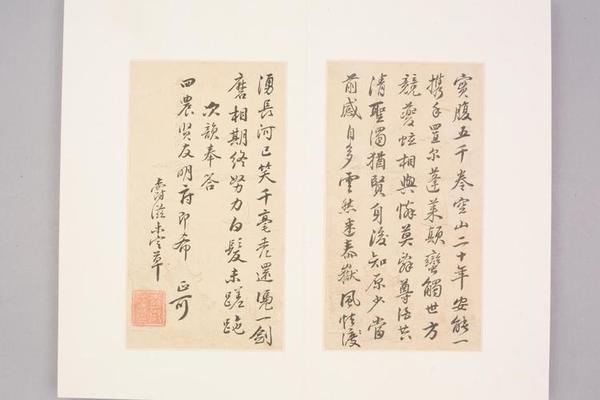 實腹五千卷空山二十年安能一
攜手置尔蓬萊顛蠻觸世方
競夔蚿相與憐莫辭尊酒共
清聖濁猶賢身後知原少當
前感自多雲愁迷泰嶽風渡
湧長河已笑千毫禿還一劍
磨相期終努力白髮未蹉跎
次韻奉答
四農賢友明府即希 正可
爵滋未定草